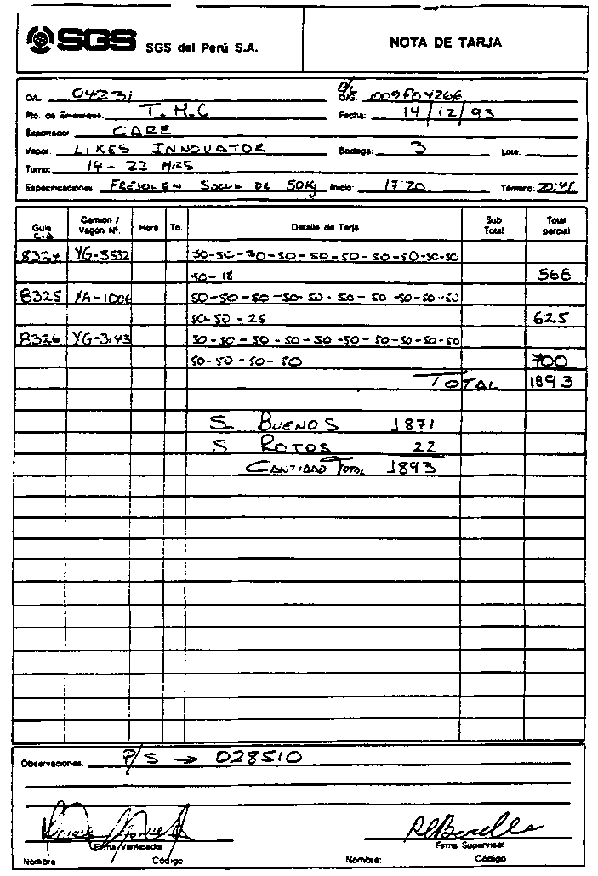 SGS SGS del Perú S.A. NOTA DE TARJA
O/L. 04231 O/S. 009504266
Pto. de Embarque: T.M.C Fecha: 14/12/93
Exportador CARE
Vapor: LIKES INNOVATOR Bodega: 3 Lote:
Turno: 14 - 22 HRS
Especificaciones: FREJOL EN SACOS DE 50Kg Inicio: 17:20 Término:
Guía C.A Camión / Vagón Nº. Hora To. Detalle de Tarja Sub Total Total parcial
8324 YG-3532 50-50-50-50-50-50-50-50-50-50
50-18 566
8325 1006 50-50-50-50-50-50-50-50-50-50
50-50-25 625
8326 YG-3143 50-50-50-50-50-50-50-50-50-50
50-50-50-50 700
TOTAL 1893
S BUENOS 1871
S ROTOS 22
CANTIDAD TOTAL 1893
Observaciones: P/S → 028510
Firma Verificador Firma Supervisor
Nombre Código Nombre: Código